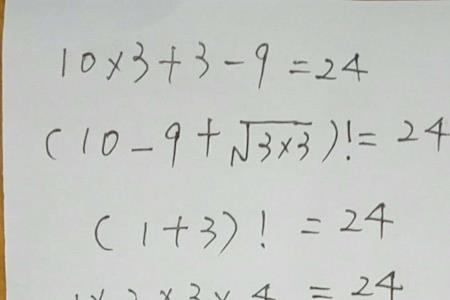 10×3+3-9=24
(10-9+√3×3)!=24
(1+3)!=24
1×2×3×4=24